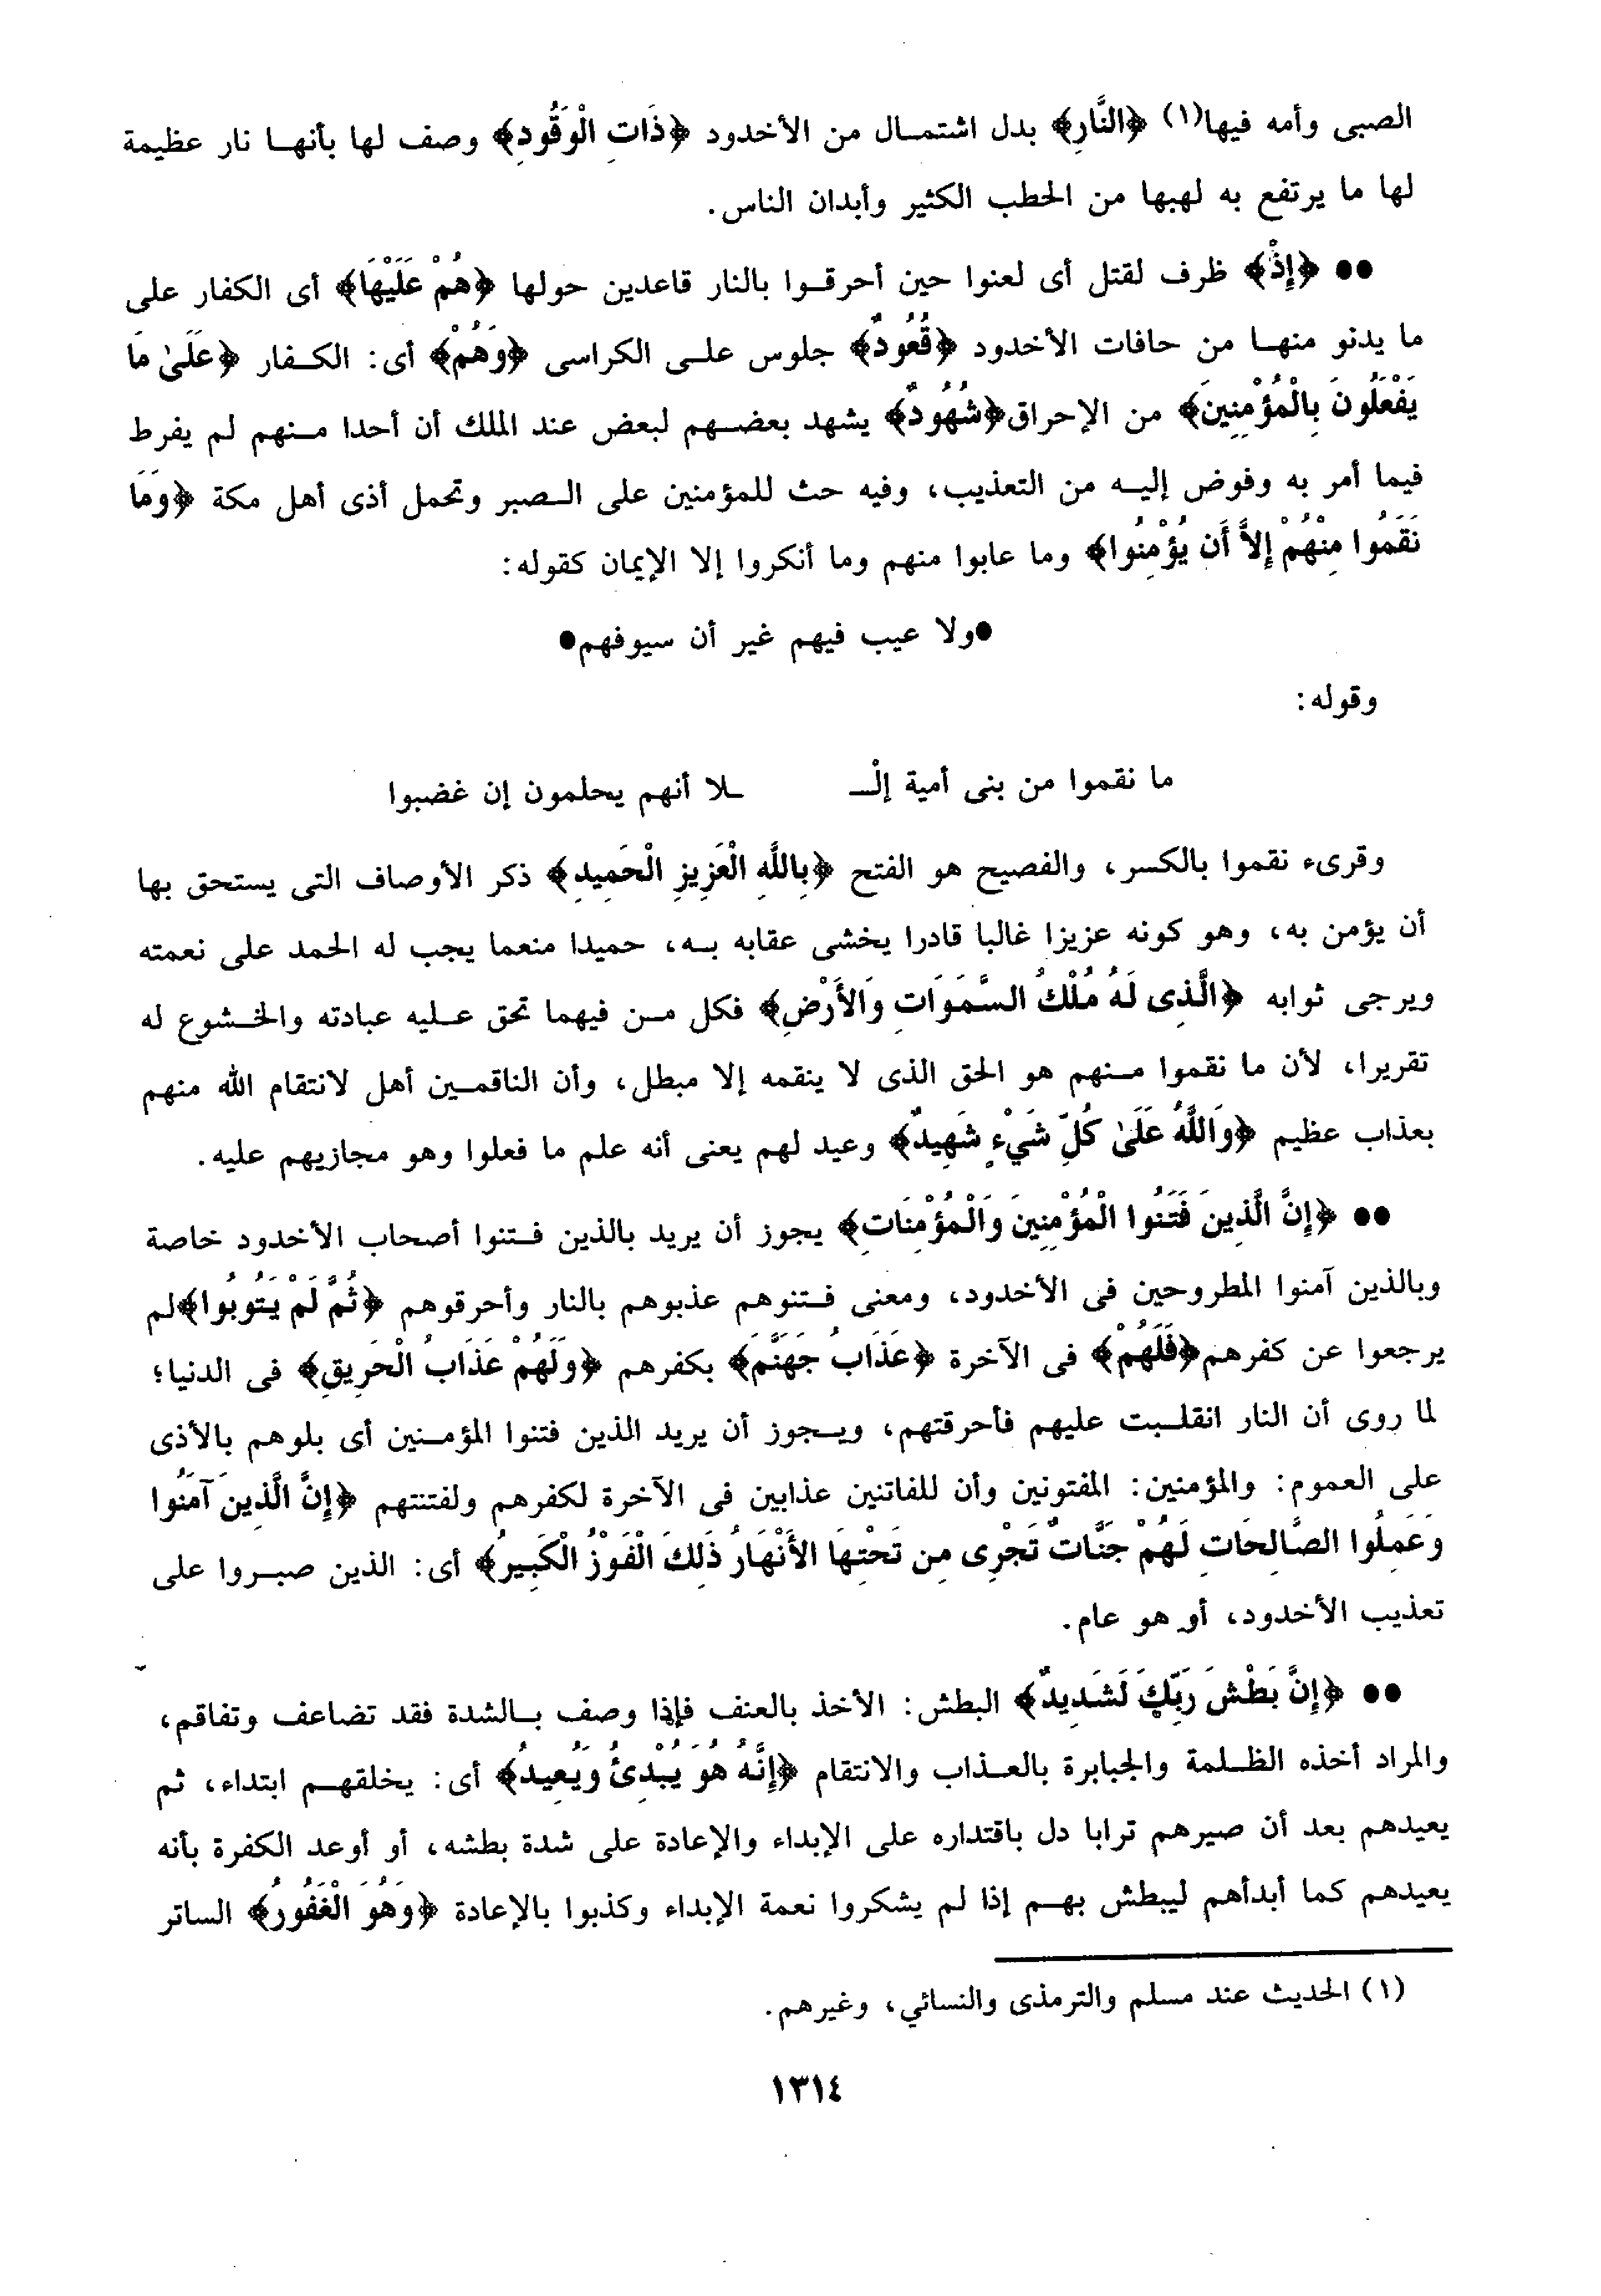 الصبى وأمه فيها(١) ﴿النَّارِ﴾ بدل اشتمال من الأخدود ﴿ذَاتِ الْوَقُودِ﴾ وصف لها بأنها نار عظيمة
لها ما يرتفع به لهبها من الحطب الكثير وأبدان الناس.
●● ﴿إِذْ﴾ ظرف لقتل أى لعنوا حين أحرقوا بالنار قاعدين حولها ﴿هُمْ عَلَيْهَا﴾ أى الكفار على
ما يدنو منها من حافات الأخدود ﴿قُعُودٌ﴾ جلوس على الكراسى ﴿وَهُمْ﴾ أى: الكفار ﴿عَلَىٰ مَا
يَفْعَلُونَ بِالْمُؤْمِنِينَ﴾ من الإحراق ﴿شُهُودٌ﴾ يشهد بعضهم لبعض عند الملك أن أحدا منهم لم يفرط
فيما أمر به وفوض إليه من التعذيب، وفيه حث للمؤمنين على الصبر وتحمل أذى أهل مكة ﴿وَمَا
نَقَمُوا مِنْهُمْ إِلاَّ أَن يُؤْمِنُوا﴾ وما عابوا منهم وما أنكروا إلا الإيمان كقوله:
●ولا عيب فيهم غير أن سيوفهم●
وقوله:
ما نقموا من بنى أمية إلْـ ـلا أنهم يحلمون إن غضبوا
وقرىء نقموا بالكسر، والفصيح هو الفتح ﴿بِاللَّهِ الْعَزِيزِ الْحَمِيدِ﴾ ذكر الأوصاف التى يستحق بها
أن يؤمن به، وهو كونه عزيزا غالبا قادرا يخشى عقابه به، حميدا منعما يجب له الحمد على نعمته
ويرجى ثوابه ﴿الَّذِى لَهُ مُلْكُ السَّمَوَاتِ وَالأَرْضِ﴾ فكل من فيهما تحق عليه عبادته والخشوع له
تقريرا، لأن ما نقموا منهم هو الحق الذى لا ينقمه إلا مبطل، وأن الناقمين أهل لانتقام الله منهم
بعذاب عظيم ﴿وَاللَّهُ عَلَىٰ كُلِّ شَيْءٍ شَهِيدٌ﴾ وعيد لهم يعنى أنه علم ما فعلوا وهو مجازيهم عليه.
●● ﴿إِنَّ الَّذِينَ فَتَنُوا الْمُؤْمِنِينَ وَالْمُؤْمِنَاتِ﴾ يجوز أن يريد بالذين فتنوا أصحاب الأخدود خاصة
وبالذين آمنوا المطروحين فى الأخدود، ومعنى فتنوهم عذبوهم بالنار وأحرقوهم ﴿ثُمَّ لَمْ يَتُوبُوا﴾ لم
يرجعوا عن كفرهم ﴿فَلَهُمْ﴾ فى الآخرة ﴿عَذَابُ جَهَنَّمَ﴾ بكفرهم ﴿وَلَهُمْ عَذَابُ الْحَرِيقِ﴾ فى الدنيا؛
لما روى أن النار انقلبت عليهم فأحرقتهم، ويجوز أن يريد الذين فتنوا المؤمنين أى بلوهم بالأذى
على العموم: والمؤمنين: المفتونين وأن للفاتنين عذابين فى الآخرة لكفرهم ولفتنتهم ﴿إِنَّ الَّذِينَ آمَنُوا
وَعَمِلُوا الصَّالِحَاتِ لَهُمْ جَنَّاتٌ تَجْرِى مِن تَحْتِهَا الأَنْهَارُ ذَلِكَ الْفَوْزُ الْكَبِيرُ﴾ أى: الذين صبروا على
تعذيب الأخدود، أو هو عام.
●● ﴿إِنَّ بَطْشَ رَبِّكَ لَشَدِيدٌ﴾ البطش: الأخذ بالعنف فإذا وصف بالشدة فقد تضاعف وتفاقم،
والمراد أخذه الظلمة والجبابرة بالعذاب والانتقام ﴿إِنَّهُ هُوَ يُبْدِئُ وَيُعِيدُ﴾ أى: يخلقهم ابتداء، ثم
يعيدهم بعد أن صيرهم ترابا دل باقتداره على الإبداء والإعادة على شدة بطشه، أو أوعد الكفرة بأنه
يعيدهم كما أبدأهم ليبطش بهم إذا لم يشكروا نعمة الإبداء وكذبوا بالإعادة ﴿وَهُوَ الْغَفُورُ﴾ الساتر
(١) الحديث عند مسلم والترمذى والنسائي، وغيرهم.
١٣١٤